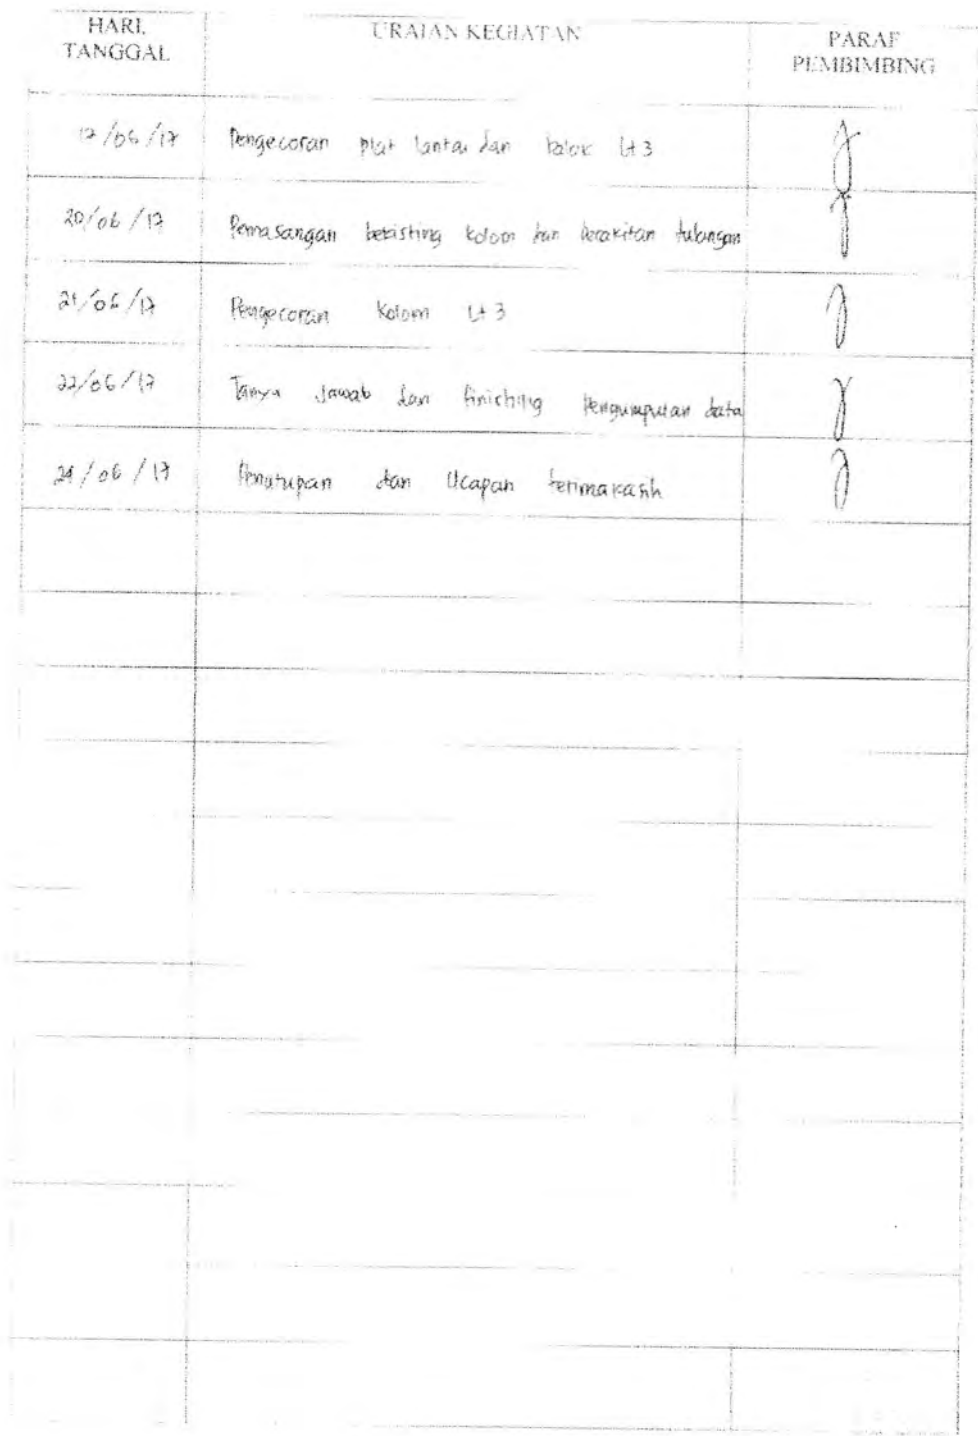 HARI, URAIAN KEGIATAN PARAF
TANGGAL PEMBIMBING
17/06/17 Pengecoran plat lantai dan balok Lt 3
20/06/17 Pemasangan bekisting kolom dan Perakitan tulangan
21/06/17 Pengecoran Kolom Lt 3
22/06/17 Tanya Jawab dan finishing Pengumpulan data
24/06/17 Penutupan dan Ucapan terimakasih